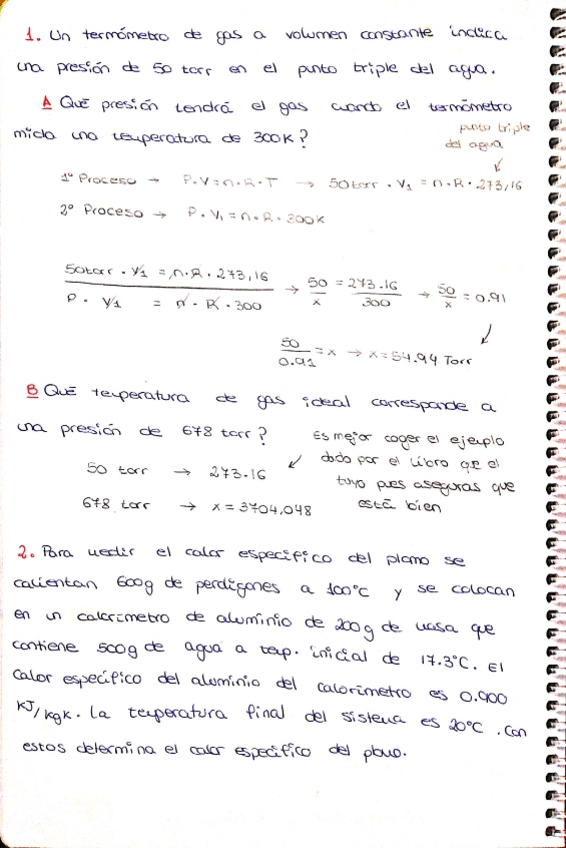 1. Un termómetro de gas a volumen constante indica
una presión de 50 torr en el punto triple del agua.
A Qué presión tendrá el gas cuando el termómetro
mida una temperatura de 300K?
punto triple
del agua
1º Proceso → P.V=n.R.T → 50torr . V1 = n.R.273,16
2º Proceso → P.V1 = n.R.300K
50torr . V1 = n.R.273,16 → 50 = 273.16 → 50 = 0.91
P. V1 = n.R.300 x 300 x
50 = x → x = 54.94 Torr
0.91
B Qué temperatura de gas ideal corresponde a
una presión de 678 torr? Es mejor coger el ejemplo
50 torr → 273.16 dado por el libro que el
tuyo pues aseguras que
678 torr → x = 3704,048 está bien
2. Para medir el calor específico del plomo se
calientan 600g de perdigones a 100ºC y se colocan
en un calorímetro de aluminio de 200g de masa que
contiene 500g de agua a temp. inicial de 17.3ºC. El
calor específico del aluminio del calorímetro es 0.900
KJ/kgK. La temperatura final del sistema es 20ºC. Con
estos determina el calor específico del plomo.